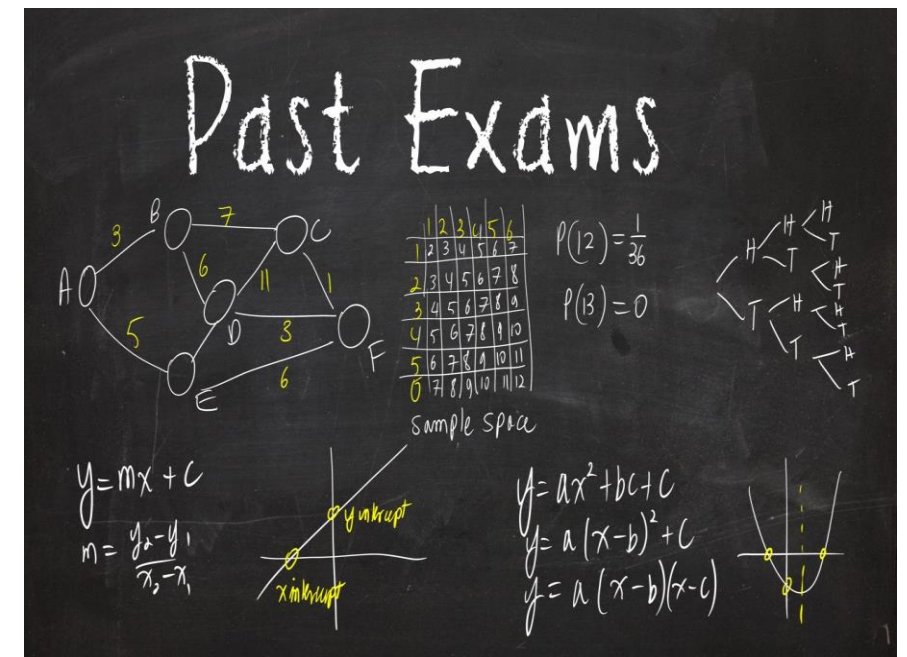 Past Exams
B
7
C
3
6
11
1
A
5
D
3
F
E
6
1 2 3 4 5 6
1 2 3 4 5 6 7
2 3 4 5 6 7 8
3 4 5 6 7 8 9
4 5 6 7 8 9 10
5 6 7 8 9 10 11
0 7 8 9 10 11 12
sample space
P(12) = 1/36
P(13) = 0
H
T
H
T
H
T
H
T
H
T
H
T
H
T
y = mx + c
m = y₂-y₁/x₂-x₁
y intercept
x intercept
y = ax² + bc + c
y = a(x-b)² + c
y = a(x-b)(x-c)